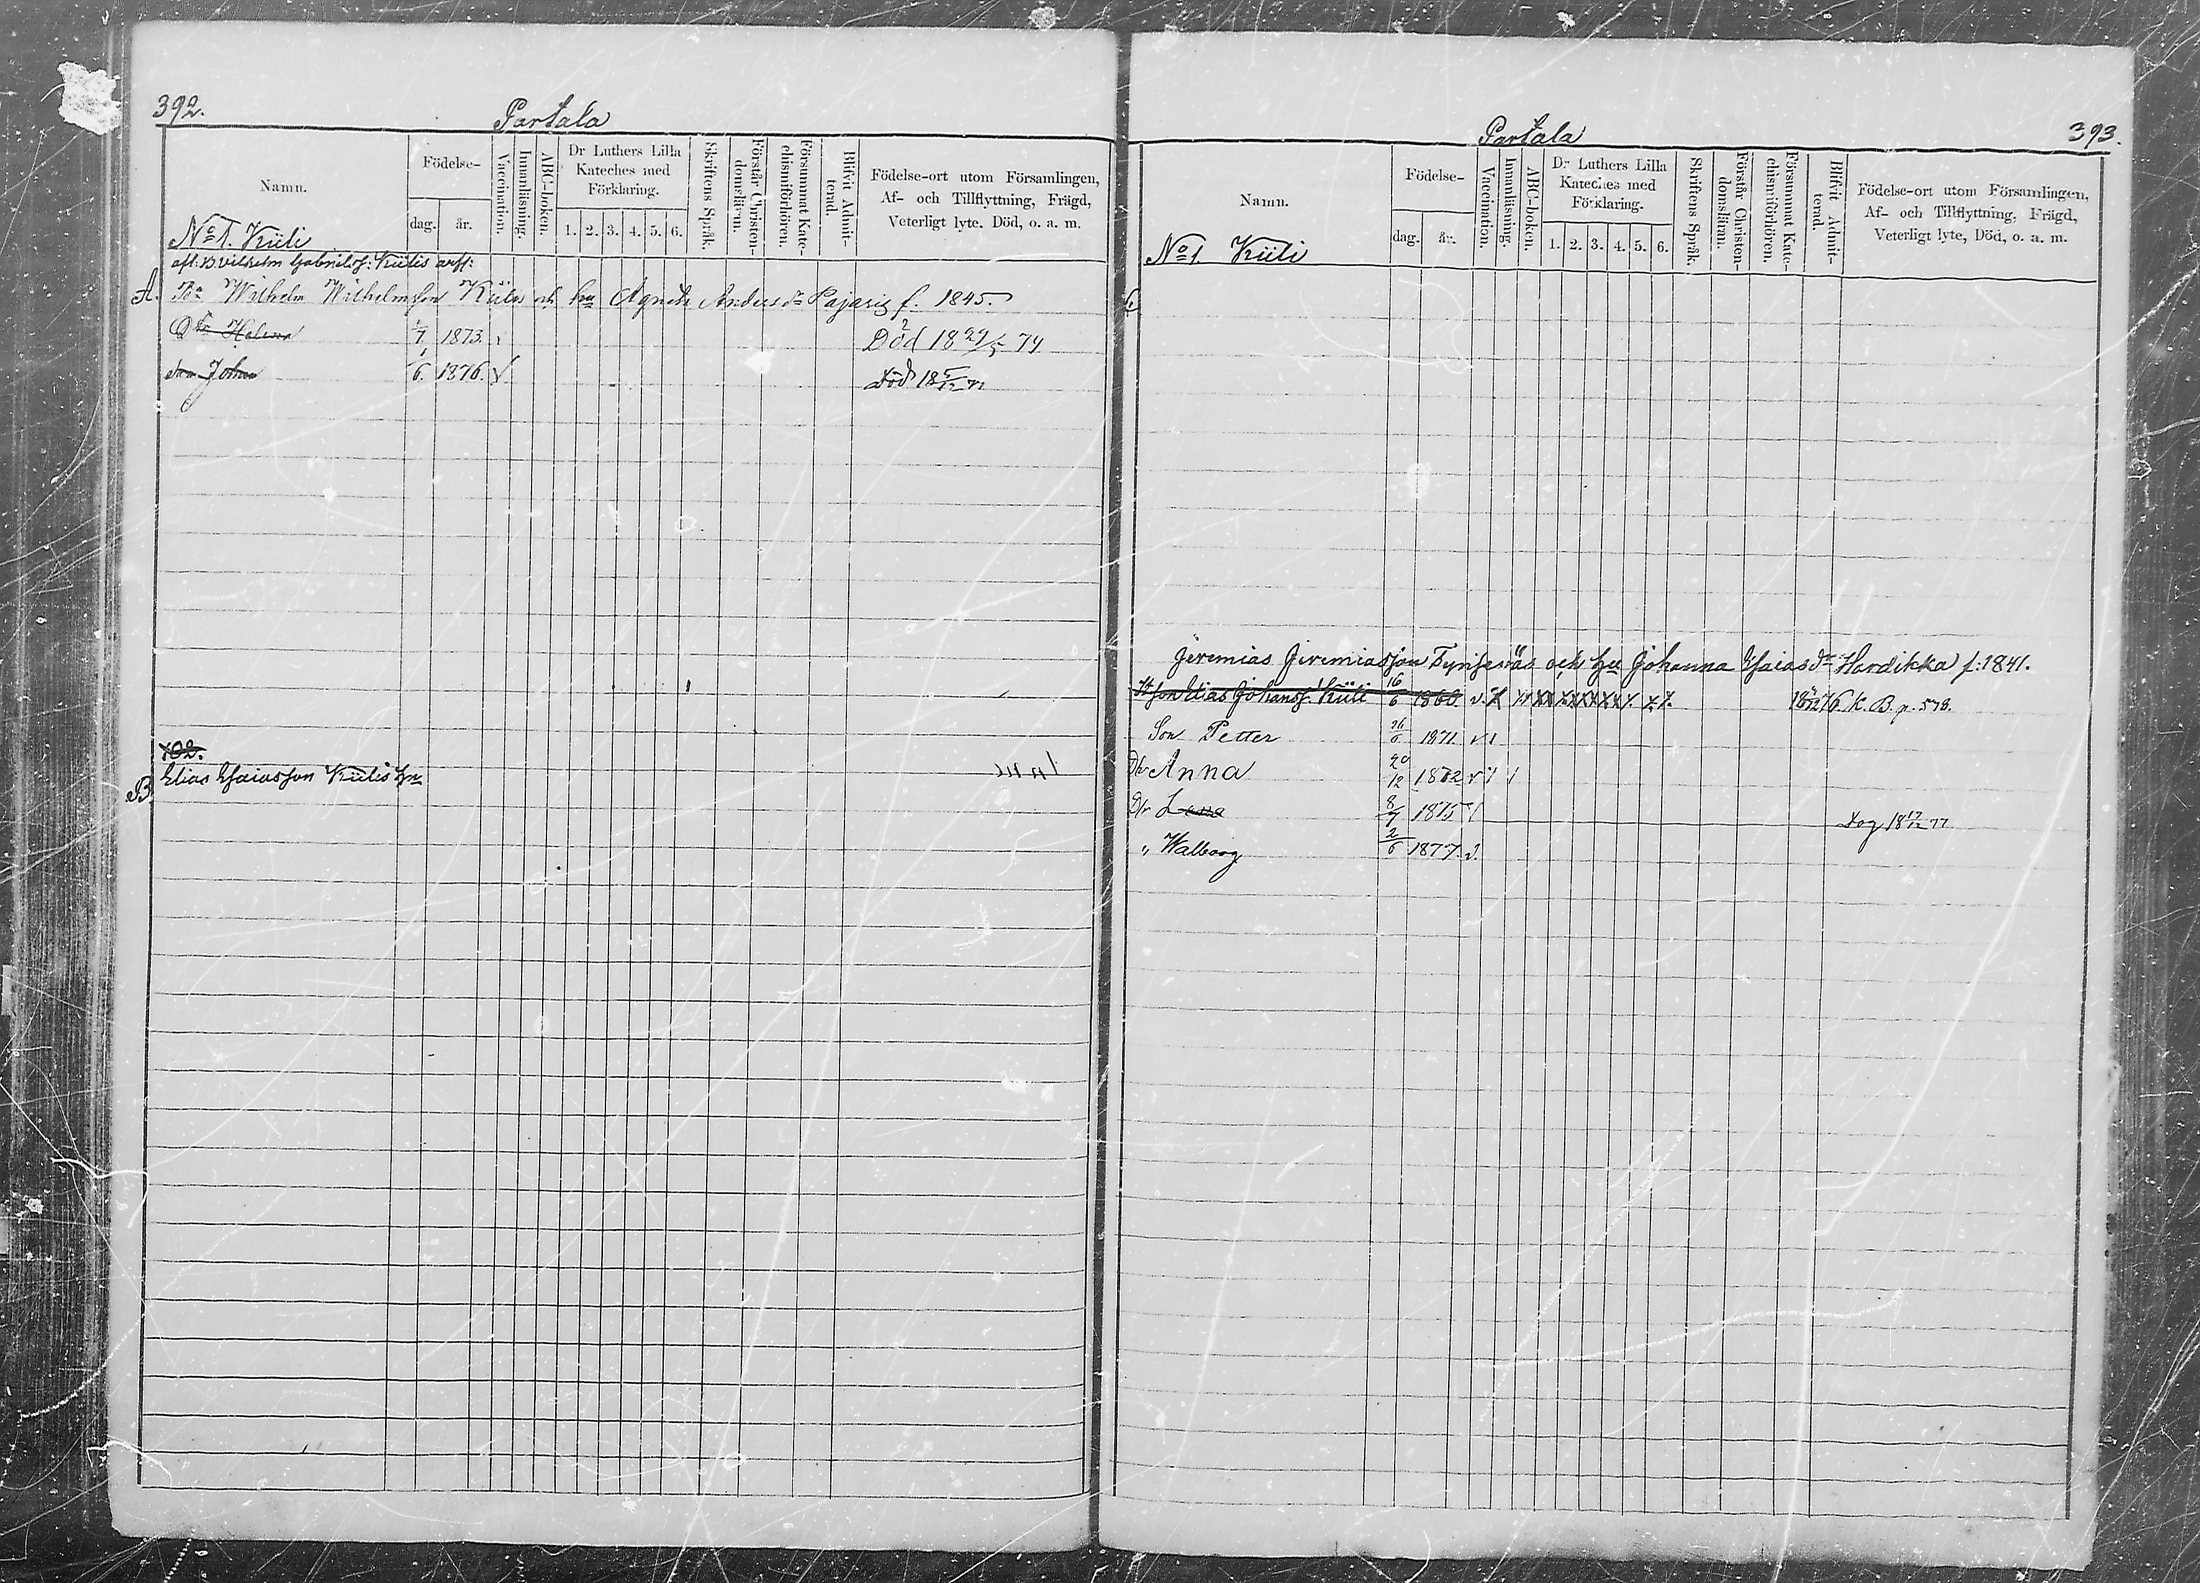 392.
Partala
Namn.
Födelse-
dag.
år.
Vaccination.
Innanläsning.
ABC-boken.
Dr Luthers Lilla
Kateches med
Förklaring.
1. 2. 3. 4. 5. 6.
Skriftens Språk.
Förstår Christen-
domsläran.
Försummat Kate-
chismiförhören.
Blifvit Admit-
terad.
Födelse-ort utom Församlingen,
Af- och Tillflyttning, Frägd,
Veterligt lyte, Död, o. a. m.
No 1. Kiili
afl: B Vilhelm Gabrielsf: Kiilis arff:
A. Bn Wilhelm Wilhelmsson Kiilis och hu Agneta Andersdr Pajaris f. 1845.
Dtr Helena 1873. Död 74
Son Johan 1/6. 1876. v. Död
B. Elias Esaiasson Kiilis
393.
Partala
Namn.
Födelse-
dag.
år.
Vaccination.
Innanläsning.
ABC-boken.
Dr Luthers Lilla
Kateches med
Förklaring.
1. 2. 3. 4. 5. 6.
Skriftens Språk.
Förstår Christen-
domsläran.
Försummat Kate-
chismiförhören.
Blifvit Admit-
terad.
Födelse-ort utom Församlingen,
Af- och Tillflyttning, Frägd,
Veterligt lyte, Död, o. a. m.
No 1 Kiili
Jeremias Jeremiasson och hu Johanna Esaiasdr Hardikka f: 1841.
son Elias Johansf. Kiili 16/6 1860. K. B. p. 578.
Son Petter 26/6 1871
Dtr Anna 20/12 1872
Dtr Lena 8/7 1875 Dog 18 17/12 77
" Walborg 2/6 1877. v.